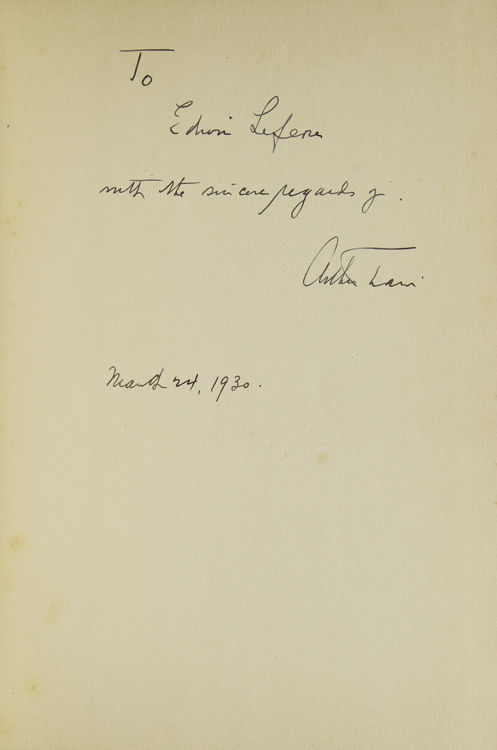 To
Edwin Lefevre
with the sincere regards of.
Arthur Train
March 24, 1930.